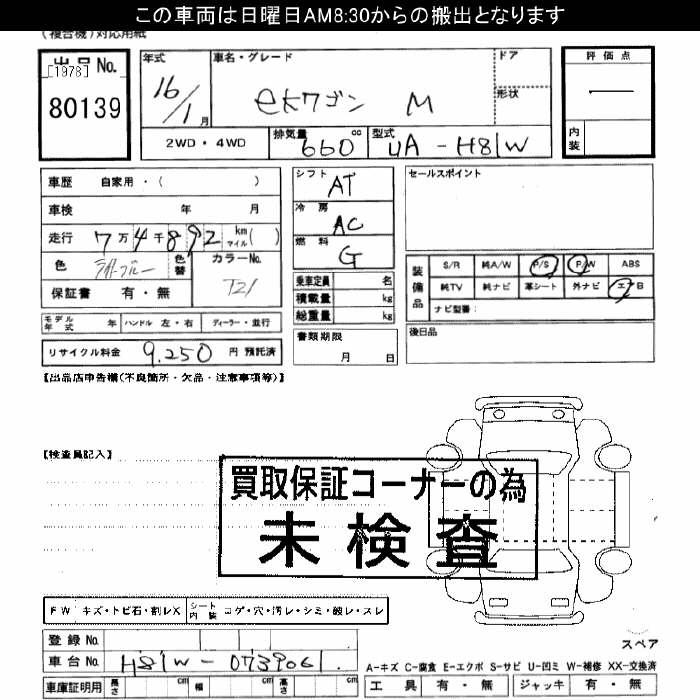 この車両は日曜日AM8:30からの搬出となります
(複合機)対応用紙
出品No.
[1978]
80139
年式
16/1月
車名・グレード
ekワゴン M
ドア
形状
2WD・4WD
排気量 660 cc
型式 UA-H81W
評価点
内装
車歴 自家用・( )
車検 年 月
走行 7万4千892 km マイル( )
色 ライトブルー
色替
カラーNo.
T21
保証書 有・無
シフト AT
冷房 AC
燃料 G
乗車定員 名
積載量 kg
総重量 kg
セールスポイント
装備品
S/R 純A/W P/S P/W ABS
純TV 純ナビ 革シート 外ナビ エアB
ナビ型番:
モデル年式 年 ハンドル 左・右 ディーラー・並行
書類期限
月 日
後日品
リサイクル料金 9,250 円 預託済
【出品店申告欄(不良箇所・欠品・注意事項等)】
【検査員記入】
買取保証コーナーの為
未検査
FW キズ・トビ石・割レX
シート内装 コゲ・穴・汚レ・シミ・破レ・スレ
登録No.
車台No. H81W-0739061
車庫証明用 長さ cm 幅 cm 高さ cm
スペア
A-キズ C-腐食 E-エクボ S-サビ U-凹ミ W-補修 XX-交換済
工具 有・無 ジャッキ 有・無